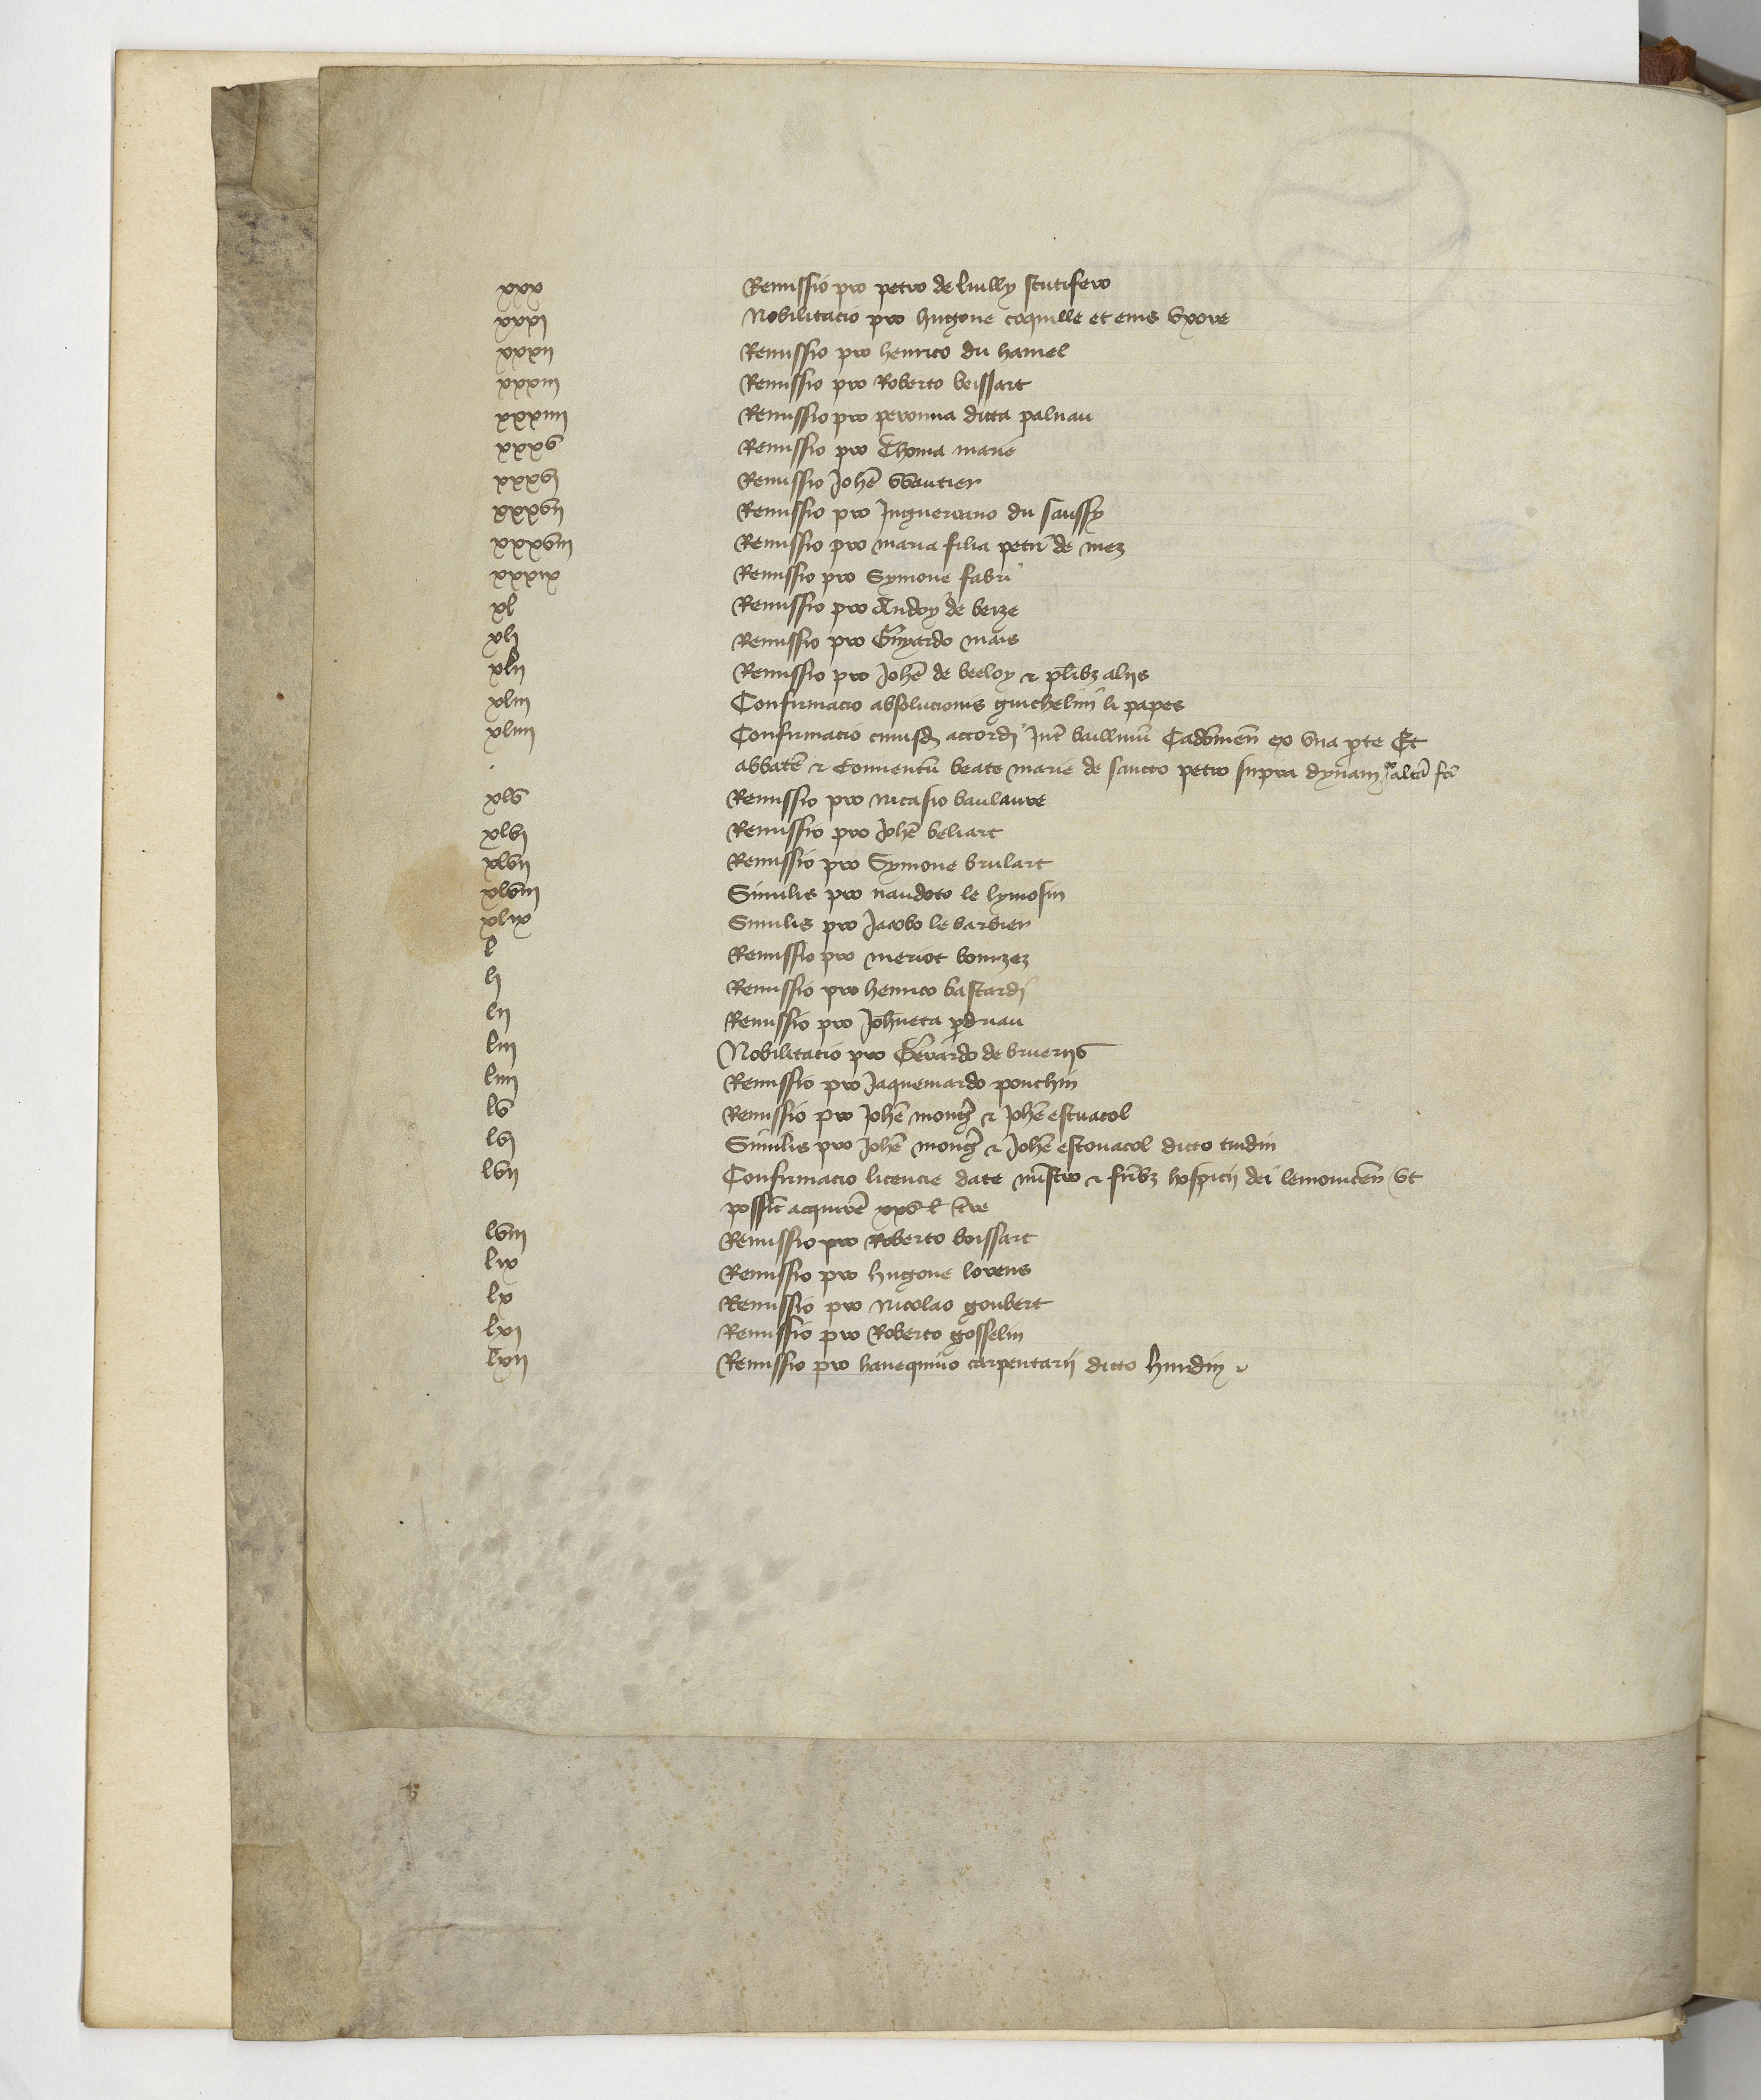 xxx Remissio pro petro de luilly scutifero
xxxi Nobilitacio pro hugone coquille et eius vxore
xxxii Remissio pro henrico du hamel
xxxiii Remissio pro Roberto boissart
xxxiiii Remissio pro peronna dicta paluau
xxxv Remissio pro Thoma marie
xxxvi Remissio Johẽ Wautier
xxxvii Remissio pro Inguerrano du saussy
xxxviii Remissio pro maria filia petri de mez
xxxix Remissio pro Symone fabri
xl Remissio pro Andry de berze
xli Remissio pro Guyardo mais
xlii Remissio pro Johẽ de beeloy ⁊ pl̃ibꝫ alijs
xliii Confirmacio absolucionis guichelini li papes
xliiii Confirmacio cuiusdꝫ accordi Int̃ bailliuũ Cadomeñ ex vna pte Et
abbatẽ ⁊ Conuentũ beate marie de sancto petro supra dynam ex alt̃a fc̃i
xlv Remissio pro nicasio baulaure
xlvi Remissio pro Johẽ beliart
xlvii Remissio pro Symone brulart
xlviii Similis pro naudoto le lymosin
xlix Similis pro Jacobo le barbier
l Remissio pro meriot
li Remissio pro henrico bastardi
lii Remissio pro Joh̃neta
liii Nobilitacio pro Gerardo de bruerijs
liiii Remissio pro Jaquemardo ponchin
lv Remissio pro Johẽ ⁊ Johẽ estuacol
lvi Similis pro Johẽ ⁊ Johẽ estouacol dicto tudin
lvii Confirmacio licencie date mĩstro ⁊ fr̃ibꝫ hospicij dei lemouiceñ vt
possĩt acquirẽ xxv l t̃re
lviii Remissio pro Roberto boissart
lix Remissio pro hugone lorens
lx Remissio pro Nicolao goubert
lxi Remissio pro Roberto gosselin
lxii Remissio pro hanequino carpentarij dicto hurdin